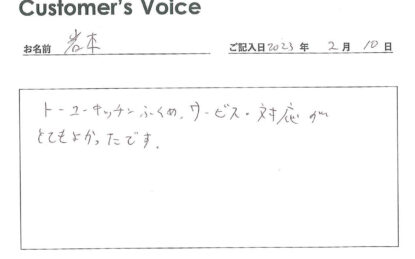 Customer's Voice
お名前 岩本 ご記入日2023年 2月 10日
トーヨーキッチンふくめ、サービス・対応が
とてもよかったです。